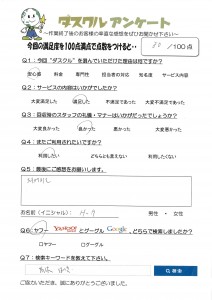 ダスクル アンケート
～作業終了後のお客様の率直な感想をぜひお聞かせ下さい～
今回の満足度を100点満点で点数をつけると・・ 80 /100点
Q1：今回“ダスクル”を選んでいただけた理由は何ですか？
安心感 料金 専門性 担当者の対応 知名度 サービス内容
Q2：サービスの内容はいかがでしたか？
大変満足した 満足した 不満足であった 大変不満であった
Q3：当日現場のスタッフの礼儀・マナーはいかがだったでしょうか？
大変良かった 良かった 悪かった 大変悪かった
Q4：またご利用されたいですか？
利用したい どちらとも思えない 利用したくない
Q5：最後にご感想をお願いします。
お名前（イニシャル） H・T 男性 ・ 女性
Q6：ヤフー YAHOO! とグーグル Google、どちらで検索しましたか？
ロヤフー ログーグル
Q7：検索キーワードを教えて下さい。
検索
ご記入いただき、誠にありがとうございました。